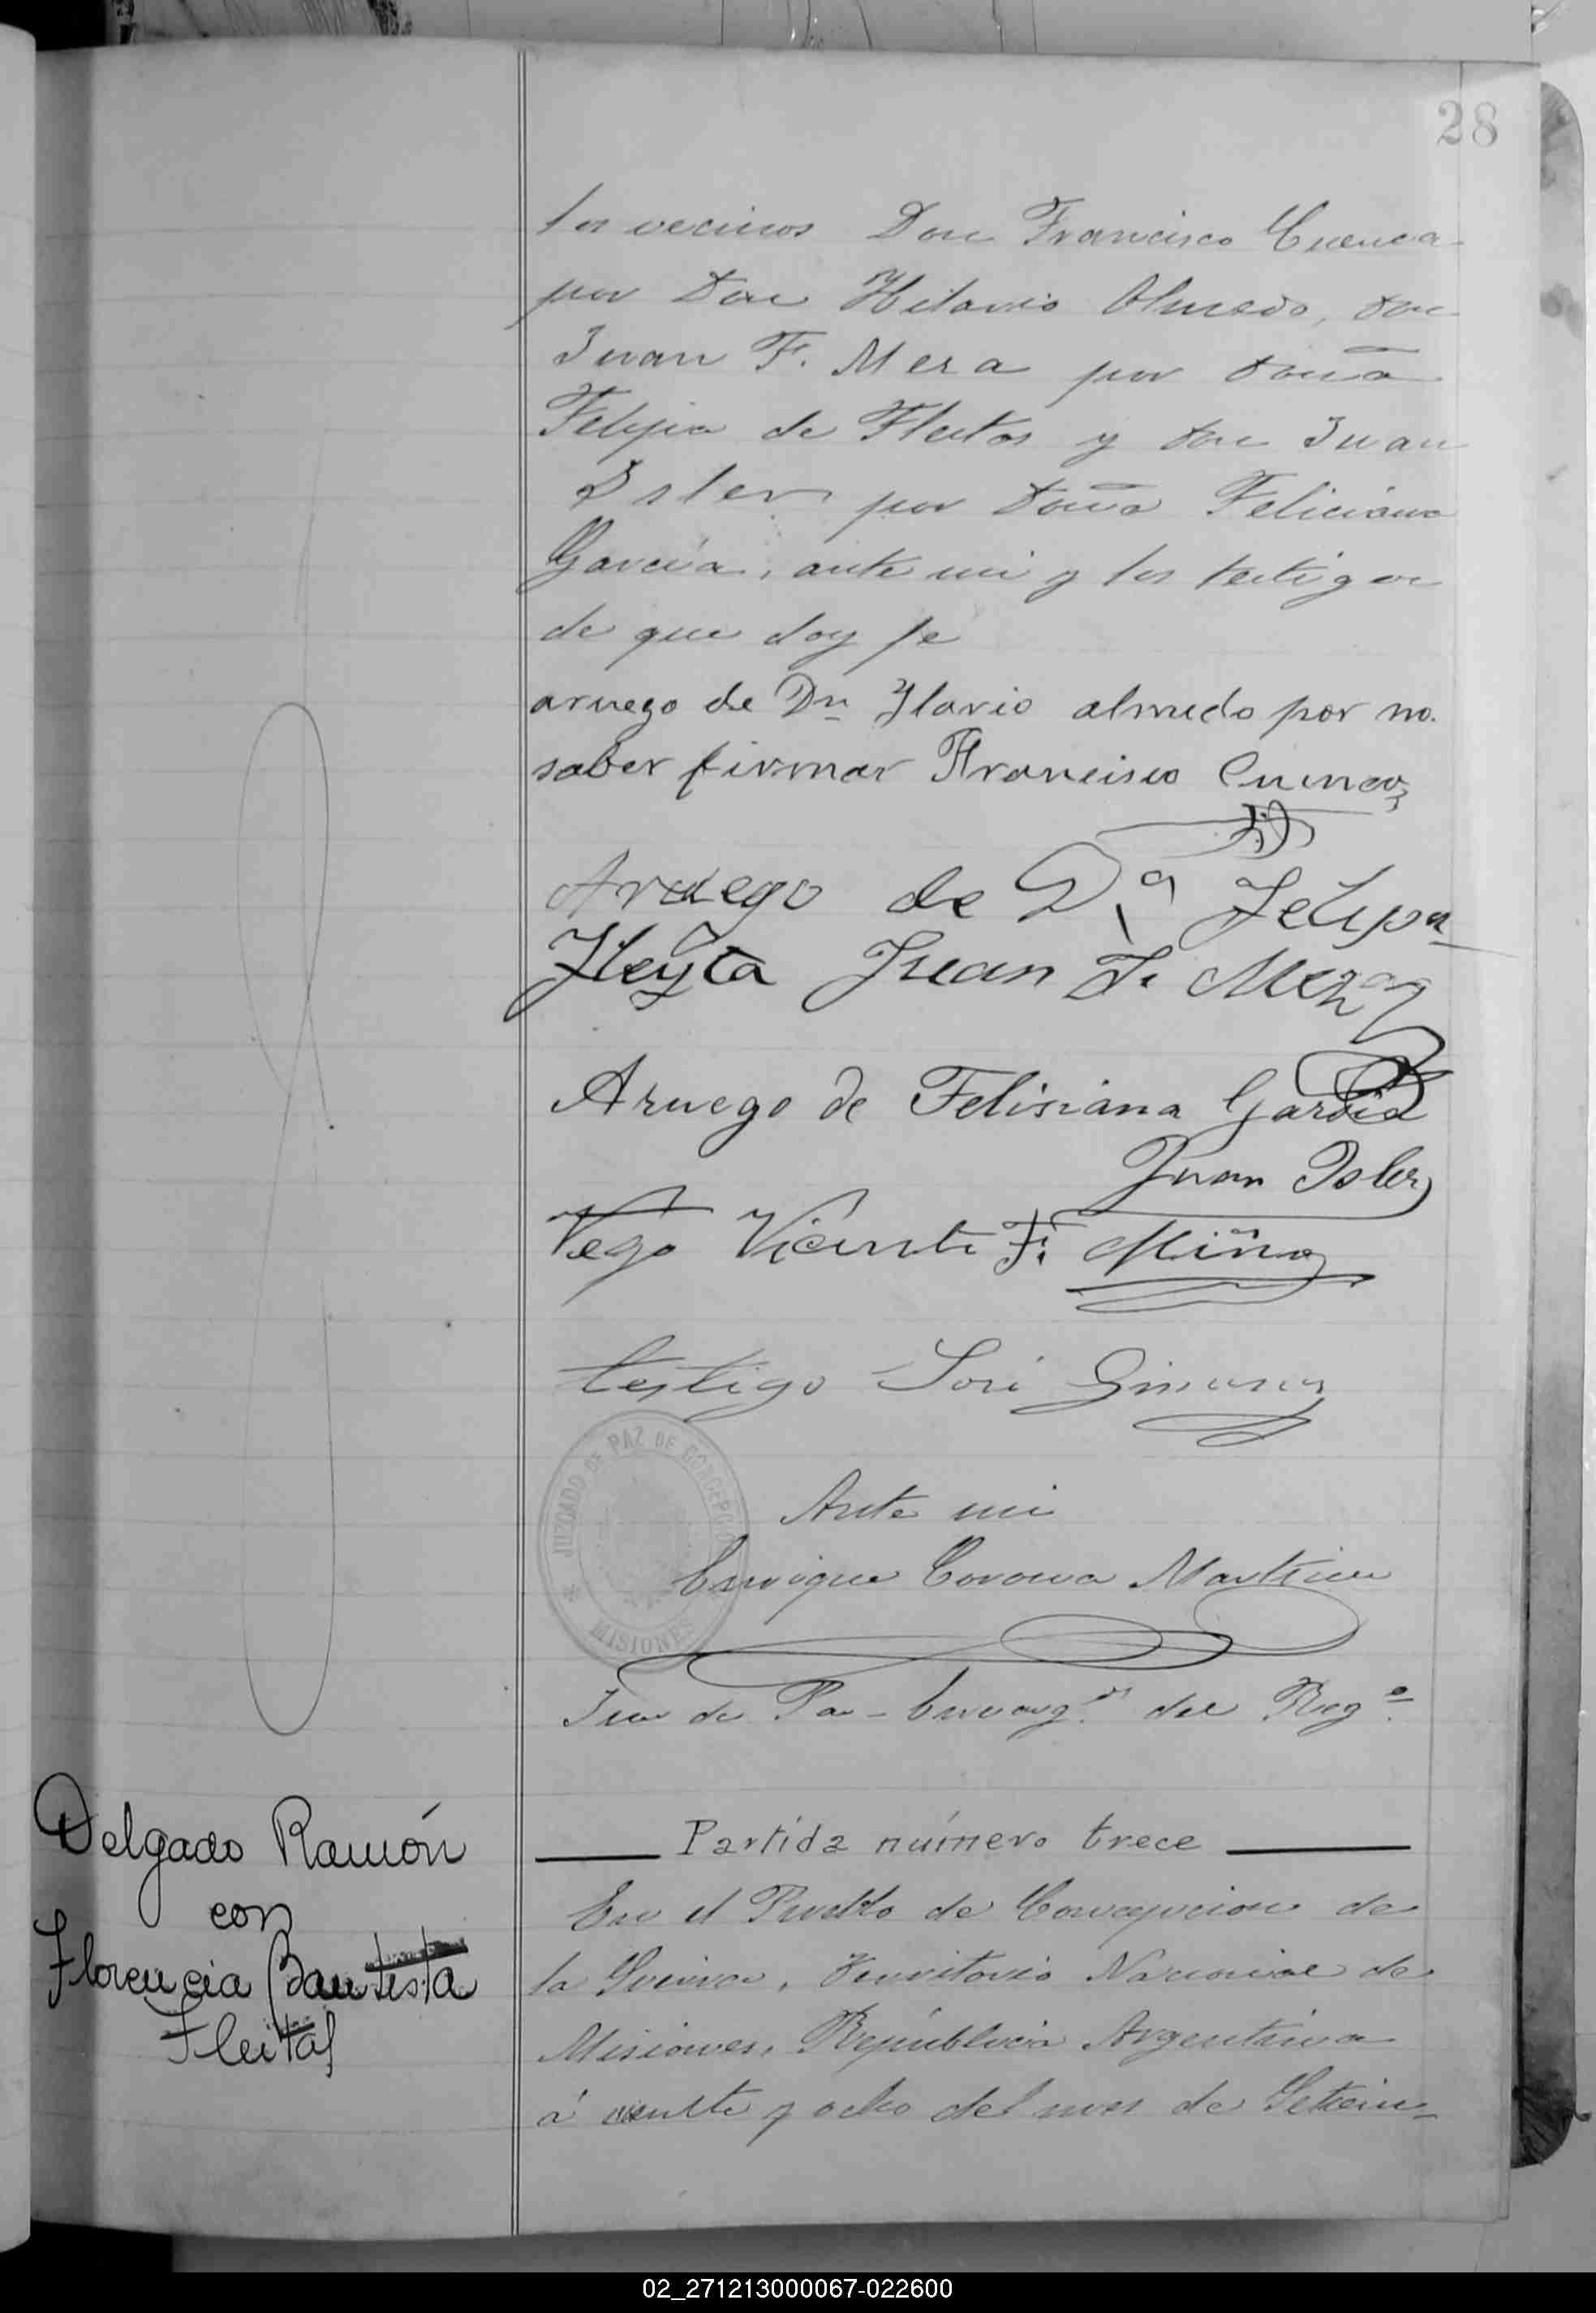 28
los vecinos Don Francisco Cuenca
por Don Hilario Olmedo, don
Juan F. Meza por doña
Felipa de Fleitas y don Juan
Isler por Doña Feliciana
García, ante mi y los testigos
de que doy fe
aruego de Dn Ilario almedo por no
saber firmar Francisco Cuenca
Aruego de Da Felipa
Fleyta Juan F. Meza
Aruego de Felisiana Garcia
Juan Isler
Tego Vicente F. Miño
testigo José Gimenez
JUZGADO DE PAZ DE CONCEPCION
MISIONES
Ante mi
Enrique Corona Martinez
Juez de Paz - Encargdo del Rego
Delgado Ramón
con
Florencia Bautista
Fleitas
Partida número trece
En el Pueblo de Concepcion de
la Sierra, Territorio Nacional de
Misiones, República Argentina
á veinte y ocho del mes de Setiem-
02_271213000067-022600